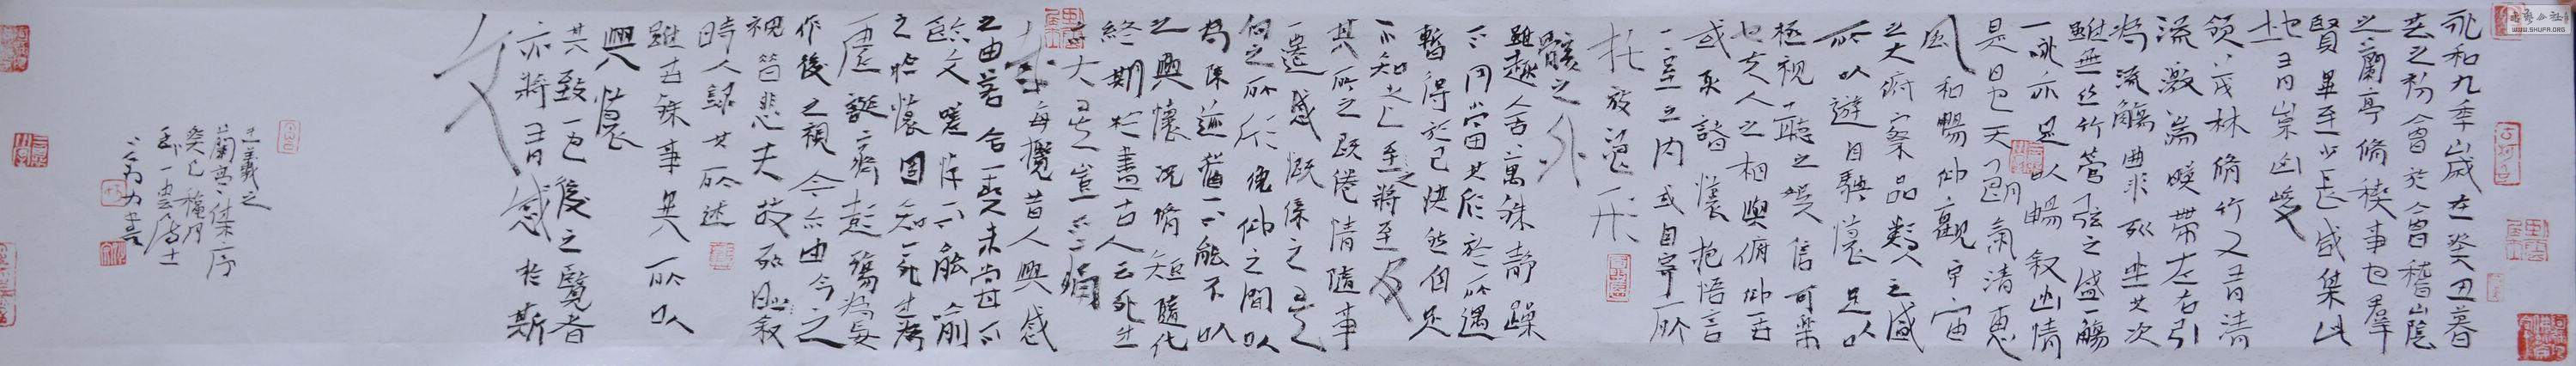 永和九年歲在癸丑暮
春之初會於會稽山陰
之蘭亭脩稧事也羣
賢畢至少長咸集此
地有崇山峻
領茂林脩竹又有清
流激湍暎帶左右引
為流觴曲水列坐其次
雖無絲竹管弦之盛一觴
一詠亦足以暢叙幽情
是日也天朗氣清惠
風和暢仰觀宇宙
之大俯察品類之盛
所以遊目騁懷足以
極視聽之娛信可樂
也夫人之相與俯仰一世
或取諸懷抱悟言
一室之內或自寄所
托放浪形
骸之外
雖趣舍萬殊静躁
不同當其欣於所遇
暫得於己快然自足
不知老之將至及
其所之既倦情隨事
遷感慨係之矣
向之所欣俛仰之間以
為陳迹猶不能不以
之興懷況脩短隨化
終期於盡古人云死生
亦大矣豈不痛
哉每攬昔人興感
之由若合一契未嘗不
臨文嗟悼不能喻
之於懷固知一死生為
虛誕齊彭殤為妄
作後之視今亦由今之
視昔悲夫故列叙
時人錄其所述
雖世殊事異所以
興懷
其致一也後之覽者
亦將有感於斯
文
王羲之
蘭亭集序
癸巳
WWW.SHUFA.ORG